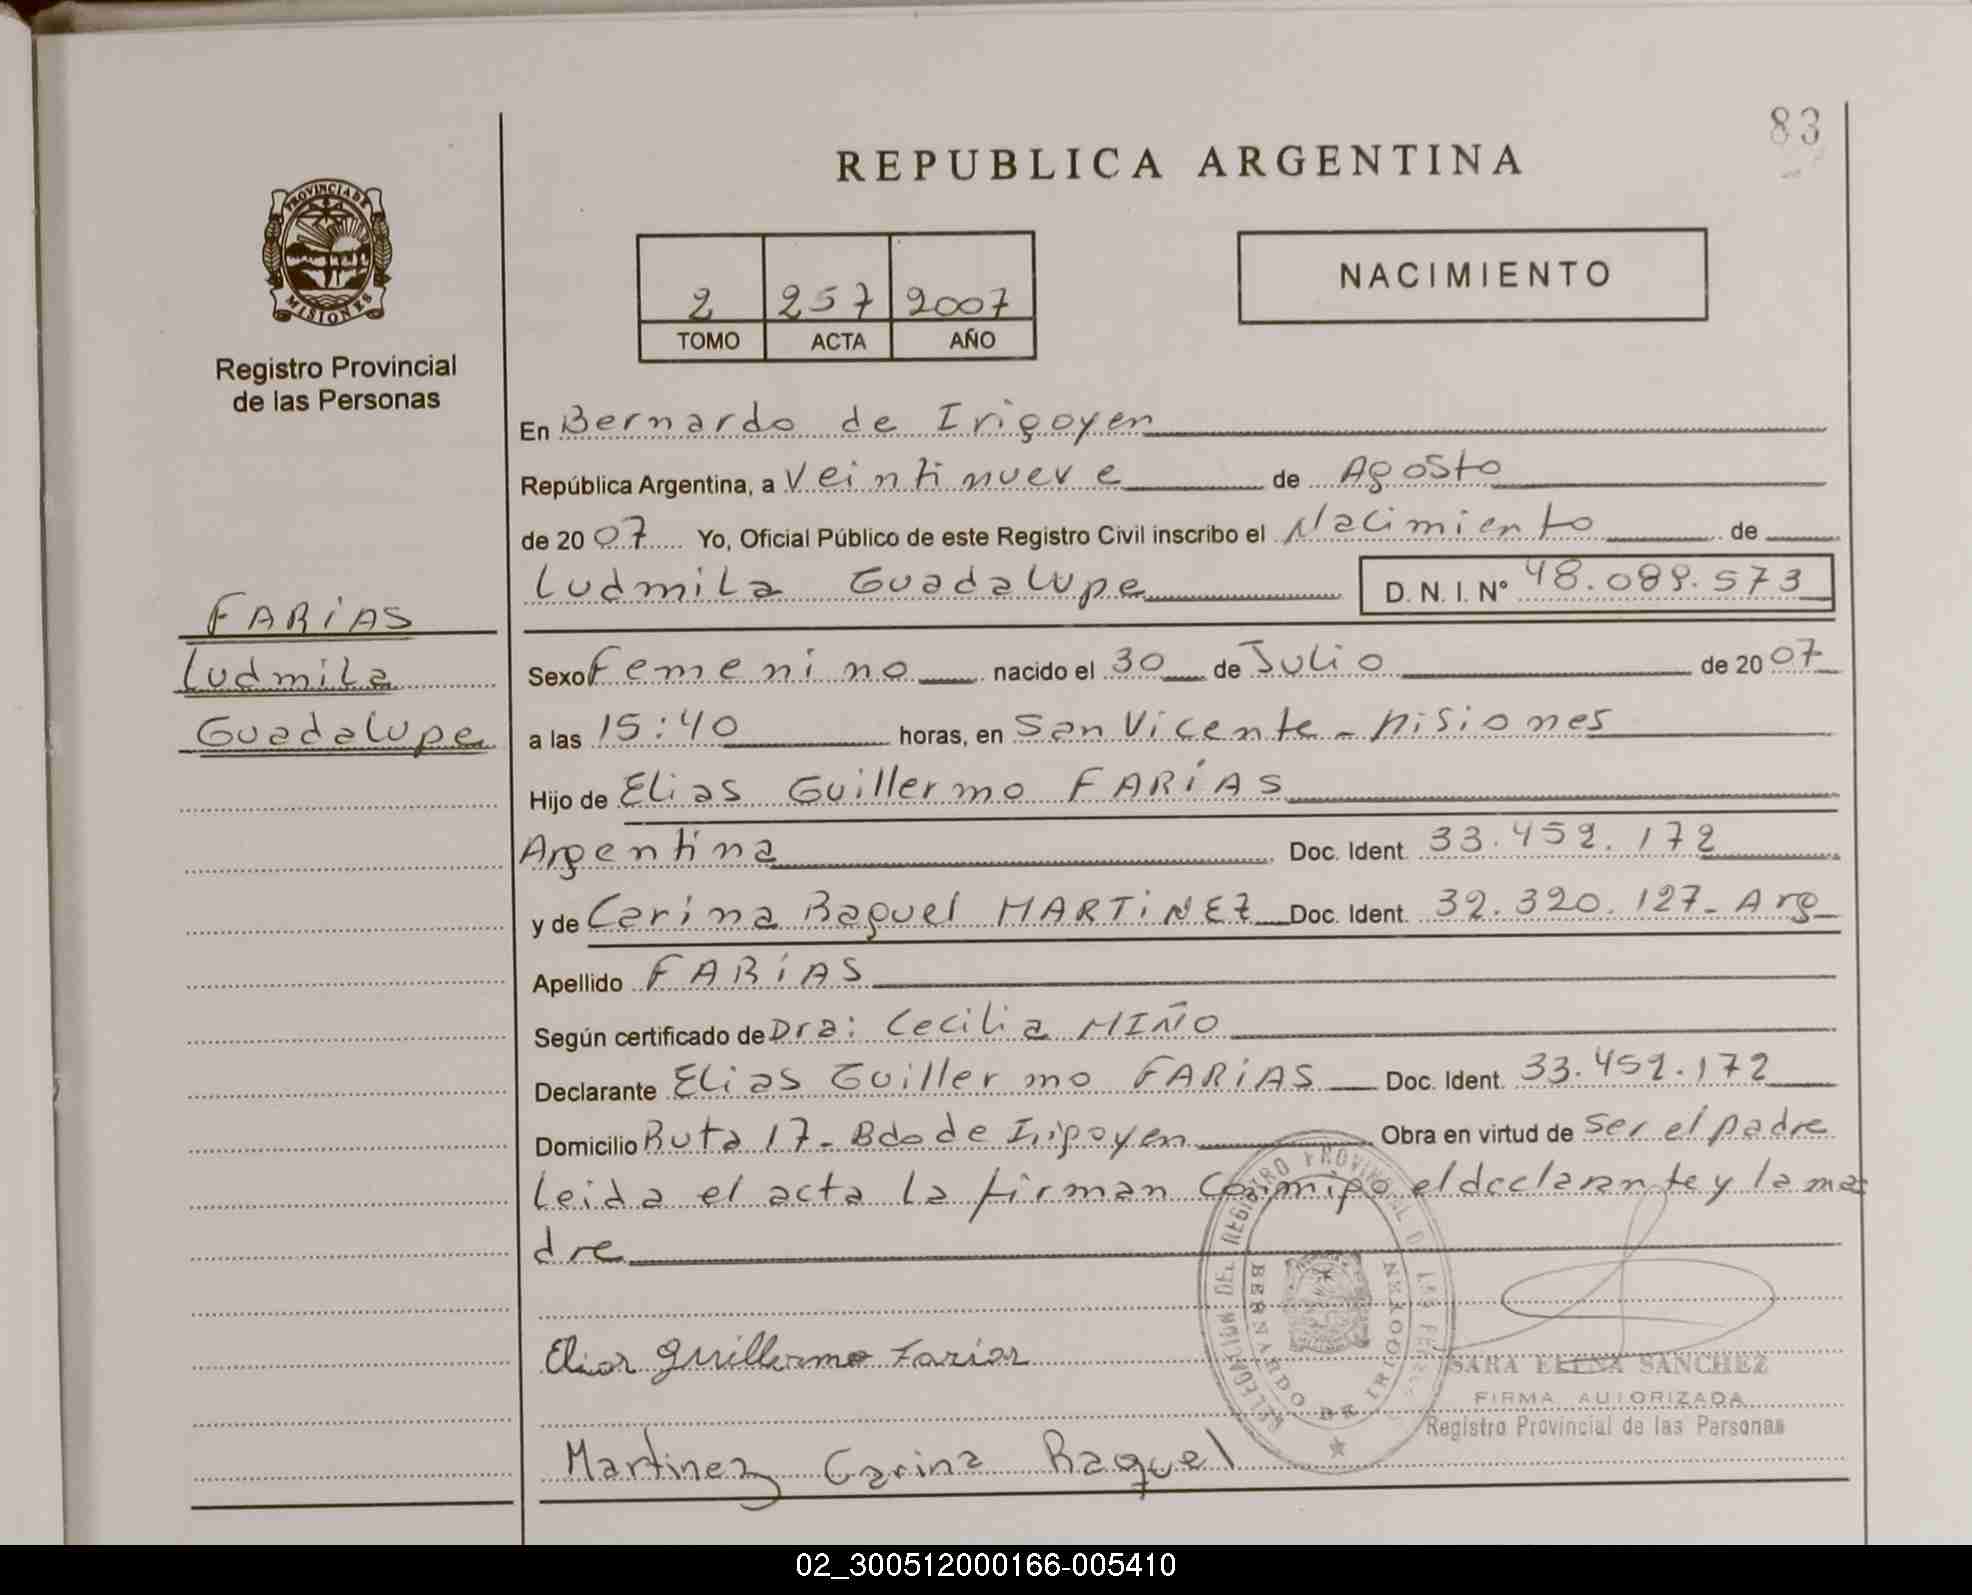 83
REPUBLICA ARGENTINA
PROVINCIA DE MISIONES
Registro Provincial
de las Personas
2 257 2007
TOMO ACTA AÑO
NACIMIENTO
En Bernardo de Irigoyen
República Argentina, a Veintinueve de Agosto
de 2007 Yo, Oficial Público de este Registro Civil inscribo el Nacimiento de
Ludmila Guadalupe D. N. I. Nº 48.089.573
FARÍAS
Ludmila
Guadalupe
Sexo Femenino nacido el 30 de Julio de 2007
a las 15:40 horas, en San Vicente - Misiones
Hijo de Elias Guillermo FARÍAS
Argentina Doc. Ident. 33.459.172
y de Carina Raquel MARTiNEZ Doc. Ident. 32.320.127 - Arg
Apellido FARÍAS
Según certificado de Dra: Cecilia MIÑO
Declarante Elias Guillermo FARíAS Doc. Ident. 33.459.172
Domicilio Ruta 17 - Bdo de Irigoyen Obra en virtud de Ser el padre
Leida el acta la firman conmigo el declarante y la ma
dre
DELEGACION DEL REGISTRO PROVINCIAL DE LAS PERSONAS
BERNARDO DE IRIGOYEN
Elias Guillermo Farias
SARA ELENA SANCHEZ
FIRMA AUTORIZADA
Registro Provincial de las Personas
Martinez Carina Raquel
02_300512000166-005410